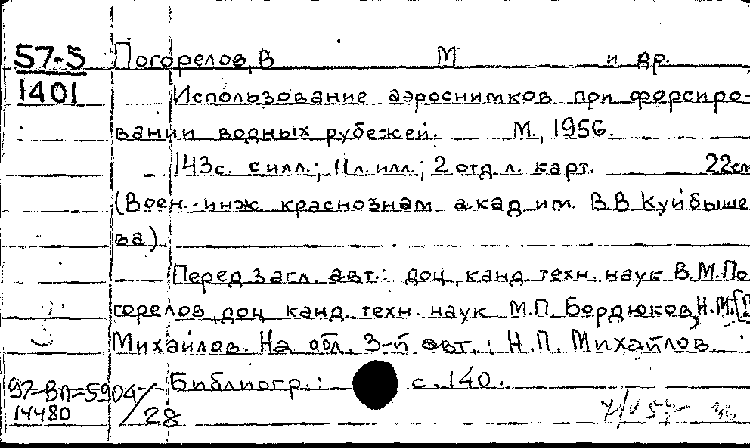 57-5 Погорелов, В М и др.
1401 Использование аэроснимков при форсиро-
вании водных рубежей. М., 1956.
143с. с илл.; 11л. илл.; 2 отд. л. карт. 22см
(Воен.-инж краснознам акад им. В.В Куйбыше
ва)
Перед загл. авт.: доц, канд техн. наук В.М.По
горелов, доц канд. техн. наук М.П. Бордюков, Н.М.
Михайлов. На обл. 3-й авт.: Н.П. Михайлов.
Библиогр.: с. 140.
97-ВП-5904/28
14480